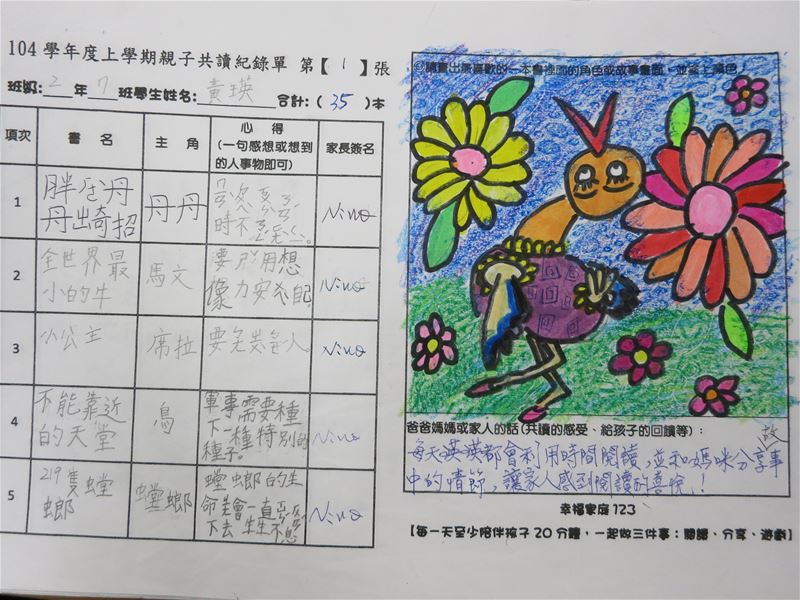 104學年度上學期親子共讀紀錄單 第【 1 】張
班級: 2 年 7 班學生姓名: 黃瑛 合計:( 35 )本
項次 書名 主角 心得 家長簽名
(一句感想或想到
的人事物即可)
1
胖國丹
丹出奇招
丹丹
時不
Nina
2
全世界最
小的牛
馬文
要用想
像力安
Nina
3
小公主
席拉
要人。
Nina
4
不能靠近
的天堂
鳥
軍事需要種
下一種特別的
種子。
Nina
5
219隻螳
螂
螳螂
螳螂的生
命會一直
下去生生不息
Nina
◎請畫出最喜歡的一本書裡面的角色或故事畫面,並塗上顏色!
爸爸媽媽或家人的話(共讀的感受、給孩子的回饋等):
每天瑛瑛都會利用時間閱讀,並和媽咪分享故事
中的情節,讓家人感到閱讀的喜悅!!
幸福家庭123
【每一天至少陪伴孩子20分鐘,一起做三件事:閱讀、分享、遊戲】